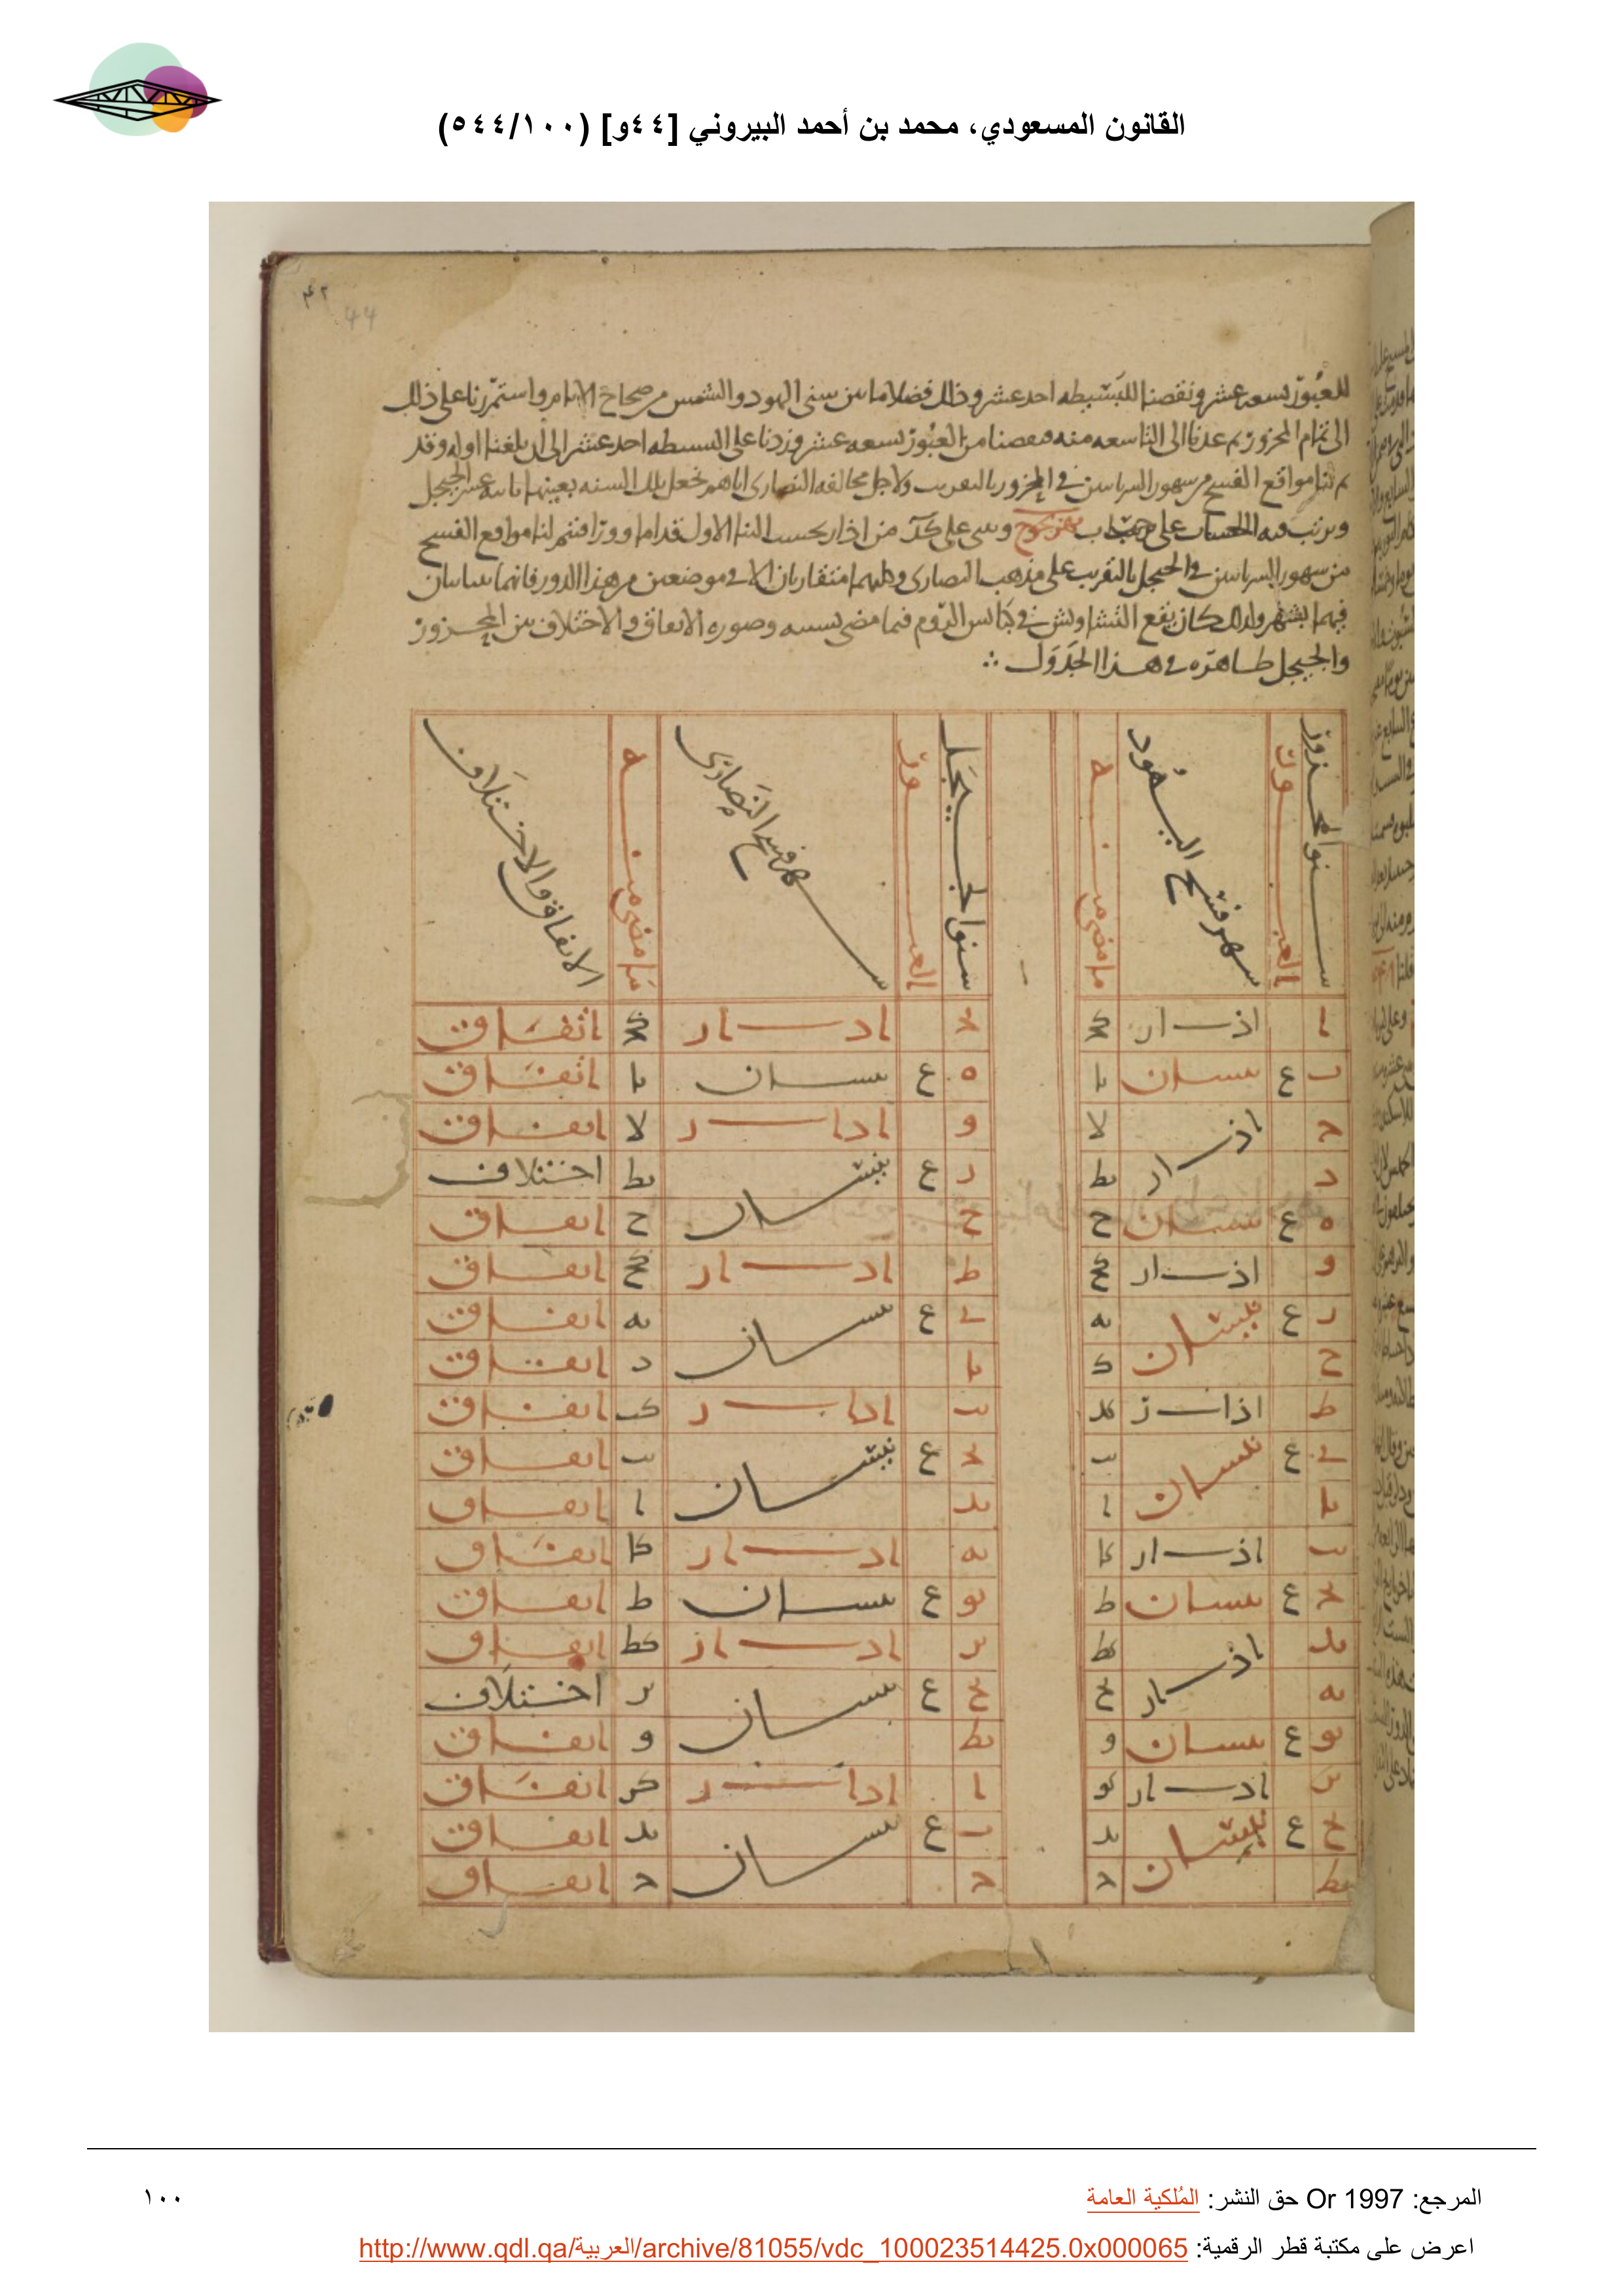 القانون المسعودي، محمد بن أحمد البيروني [٤٤و] (٥٤٤/١٠٠)
٤٢
44
للعبور تسعه عشر ونقصنا للبسيطه احد عشر وذلك فضلا ما بين سنى اليهود والشمس من صحاح الايام واستمررنا على ذلك
الى تمام المحزور ثم عدنا الى التاسعه منه فنقصنا من العبور تسعه عشر وزدنا على البسيطه احد عشر الى ان بلغنا اوله وقد
مواقع الفسح من شهور السريانيين فى المحزور بالتقريب ولاجل مخالفه النصارى اياهم نجعل تلك السنه بعينها ثانيه عشر الجيجل
ونرتب فيه الحساب على بهزيجوح من اذار بحسب البنا الاول قداما وورا فتتم لنا مواقع الفسح
من شهور السريانيين فى الجيجل بالتقريب على مذهب النصارى وكليهما متقاربان الا فى موضعين من هذا الدور فانهما يتباينان
فيهما بشهر ولذلك كان يقع التشاويش فى كنايس الروم فيما مضى بسببه وصوره الاتفاق والاختلاف بين المحزور
والجيجل ظاهره فى هذا الجدول ∴
سنوا محزور | العبور | شهر فسح اليهود | ما مضى منه | سنوا لجيجل | العبور | شهر فسح النصارى | ما مضى منه | الاتفاق والاختلاف
ا | اذار | كح | د | ادار | كح | اتفاق
ب | ع | نيسان | يا | ه | ع | نيسان | يا | اتفاق
ح | اذار | لا | و | ادار | لا | اتفاق
د | يط | ر | ع | نيسان | يط | اختلاف
ه | ع | نيسان | ح | ح | ح | اتفاق
و | اذار | كح | ط | ادار | كح | اتفاق
ر | ع | نيسان | يه | ى | ع | نيسان | يه | اتفاق
ح | د | يا | د | اتفاق
ط | اذار | كد | يب | ادار | كد | اتفاق
ى | ع | نيسان | يب | يح | ع | نيسان | يب | اتفاق
يا | ا | يد | ا | اتفاق
يب | اذار | كا | يه | ادار | كا | اتفاق
يح | ع | نيسان | ط | يو | ع | نيسان | ط | اتفاق
يد | اذار | كط | ير | ادار | كط | اتفاق
يه | يح | يح | ع | نيسان | ير | اختلاف
يو | ع | نيسان | و | يط | و | اتفاق
ير | ادار | كو | ا | ادار | كر | اتفاق
يح | ع | نيسان | يد | ب | ع | نيسان | يد | اتفاق
يط | ح | ح | ح | اتفاق
المرجع: Or 1997 حق النشر: المُلكية العامة
١٠٠
اعرض على مكتبة قطر الرقمية: http://www.qdl.qa/العربية/archive/81055/vdc_100023514425.0x000065